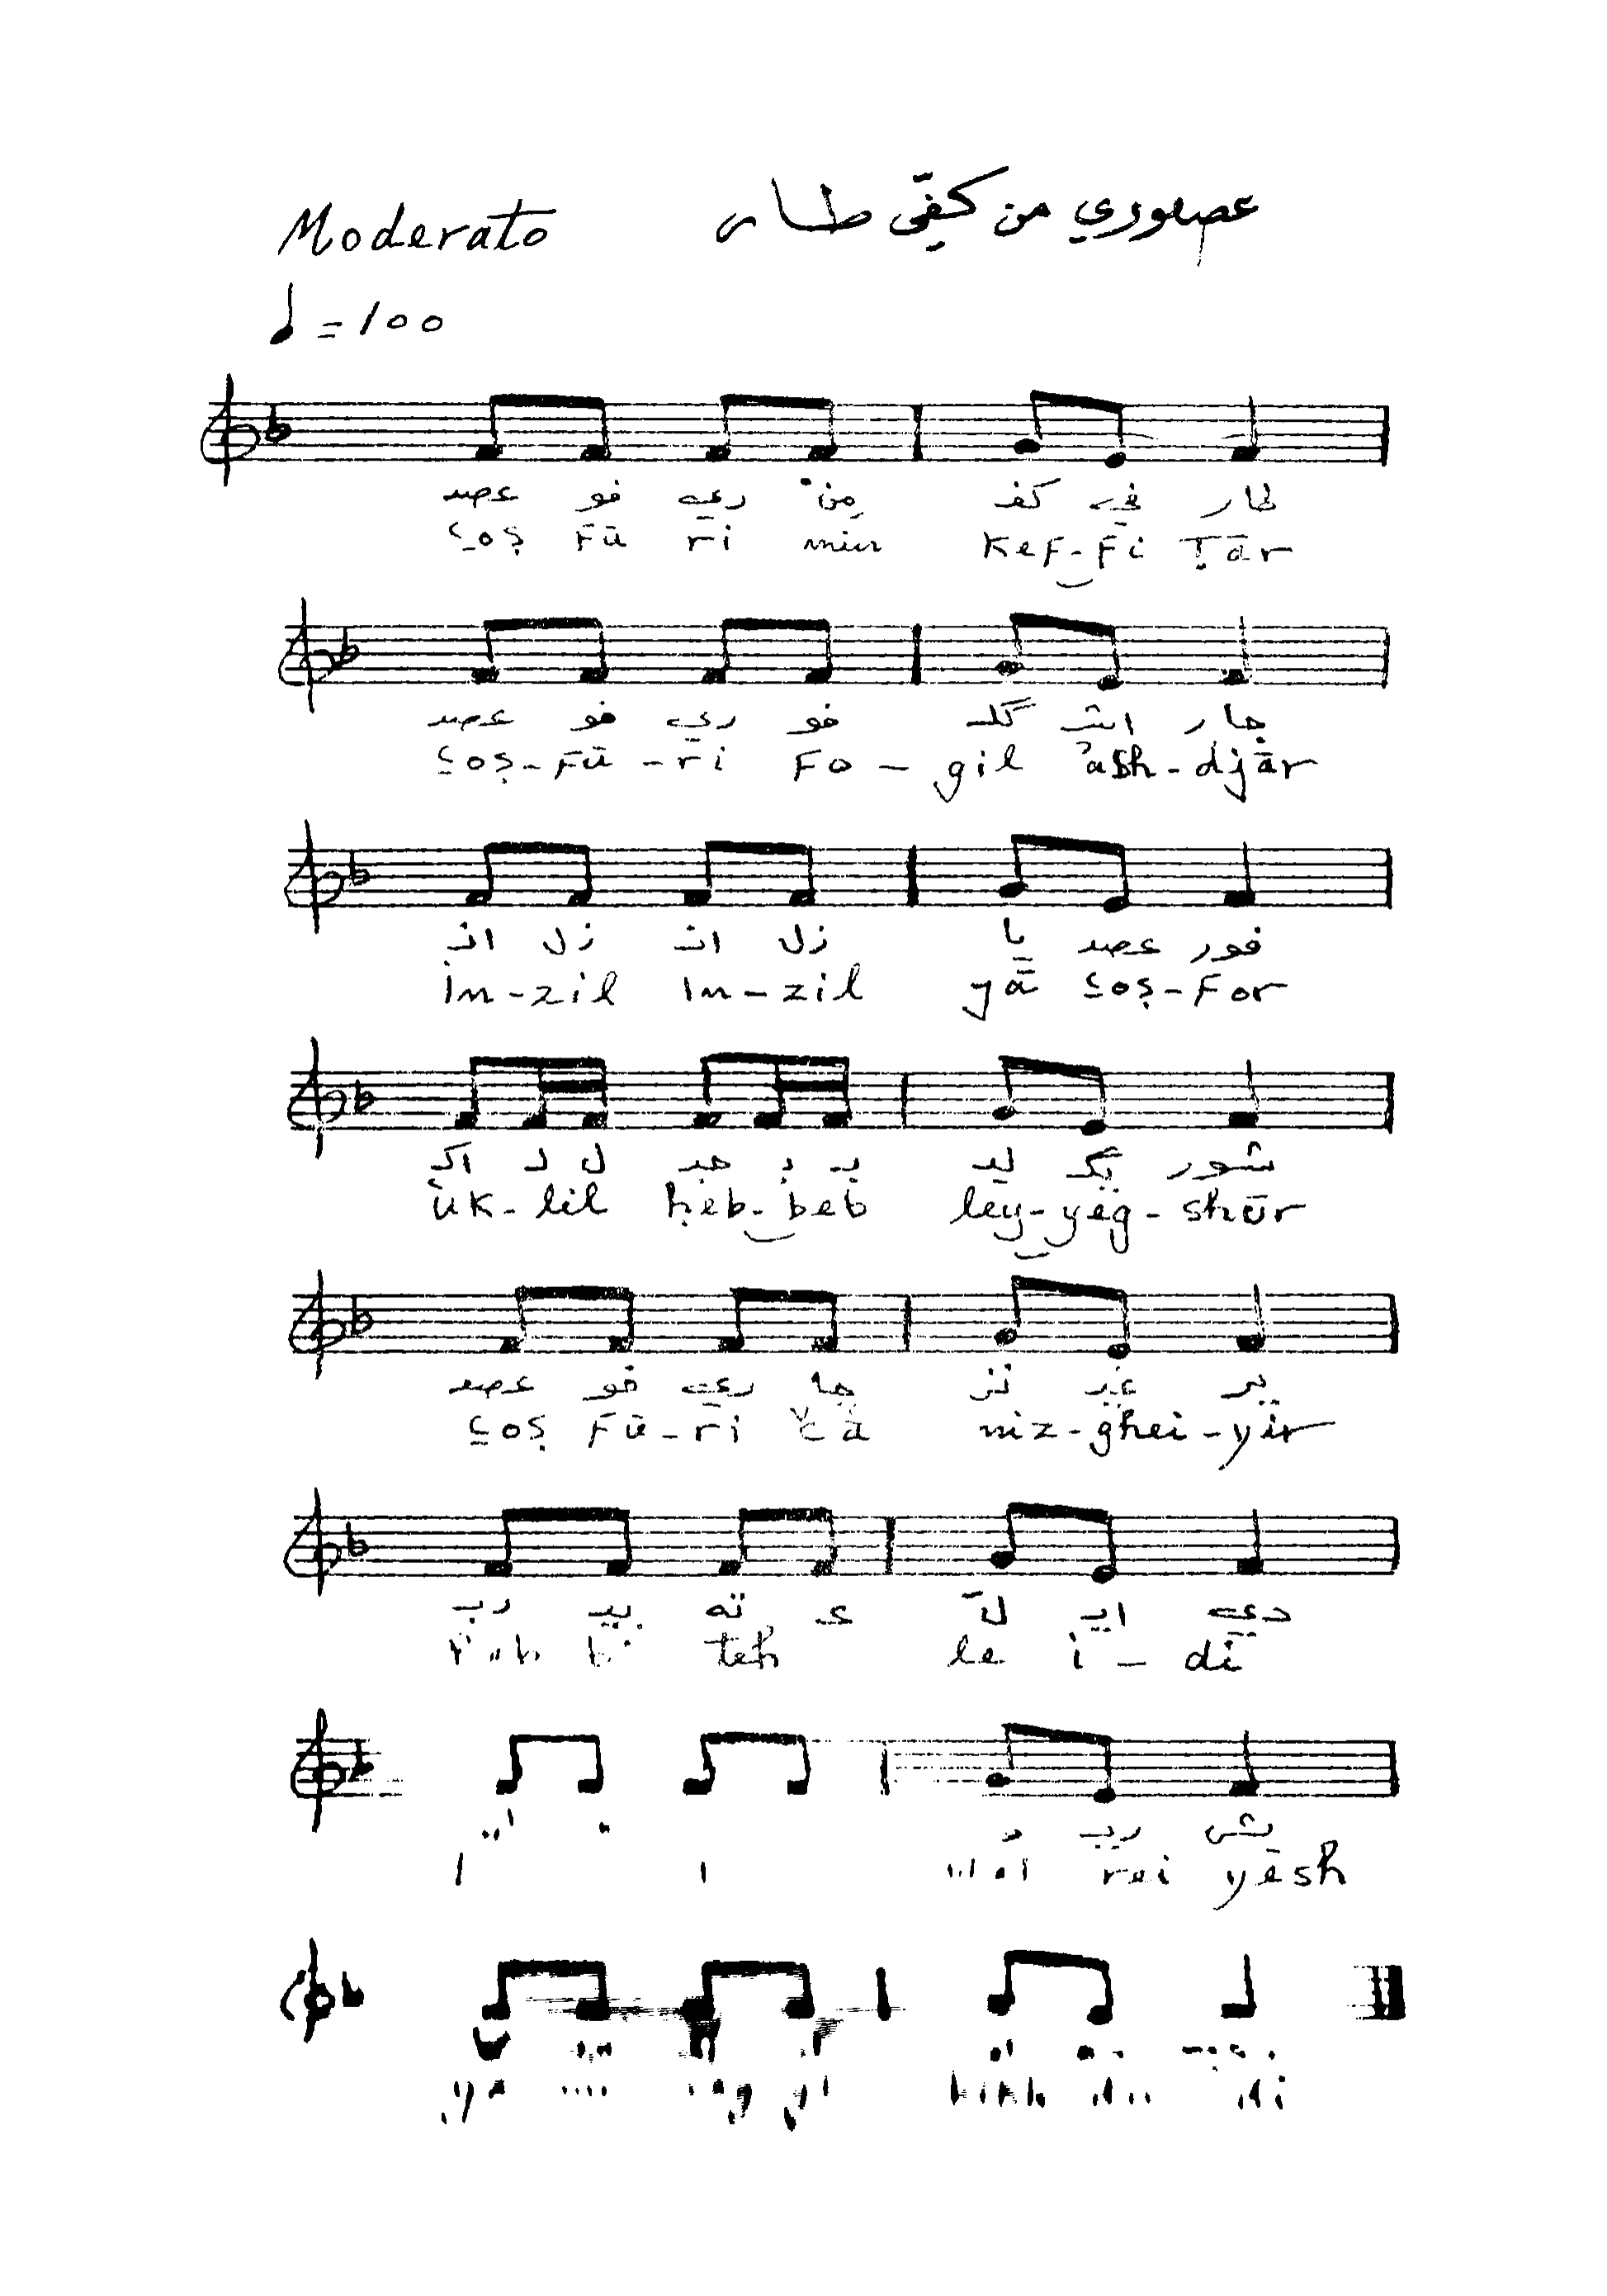 Moderato عصفوري من كفّي طار
♩ = 100
عصـ فو ري مِن كفـ في طار
ʕoṣ Fū rī min Kef-fi Ṭār
عصـ فو ري فو گلـ اشـ جار
ʕoṣ-Fū-rī Fo-gil ʾash-djār
انـ زل انـ زل يا عصـ فور
in-zil in-zil yā ʕoṣ-For
اكـ لـ ل حبـ بـ بـ ليـ يگـ شور
ük-lil ḥeb-beb ley-yeg-shūr
عصـ فو ري چا نز غيـ ير
ʕoṣ Fū-rī čā niz-ghei-yir
ربـ بيـ ته عـ لَ ايـ دي
teh le i-dī
ريـ يش
rei yēsh